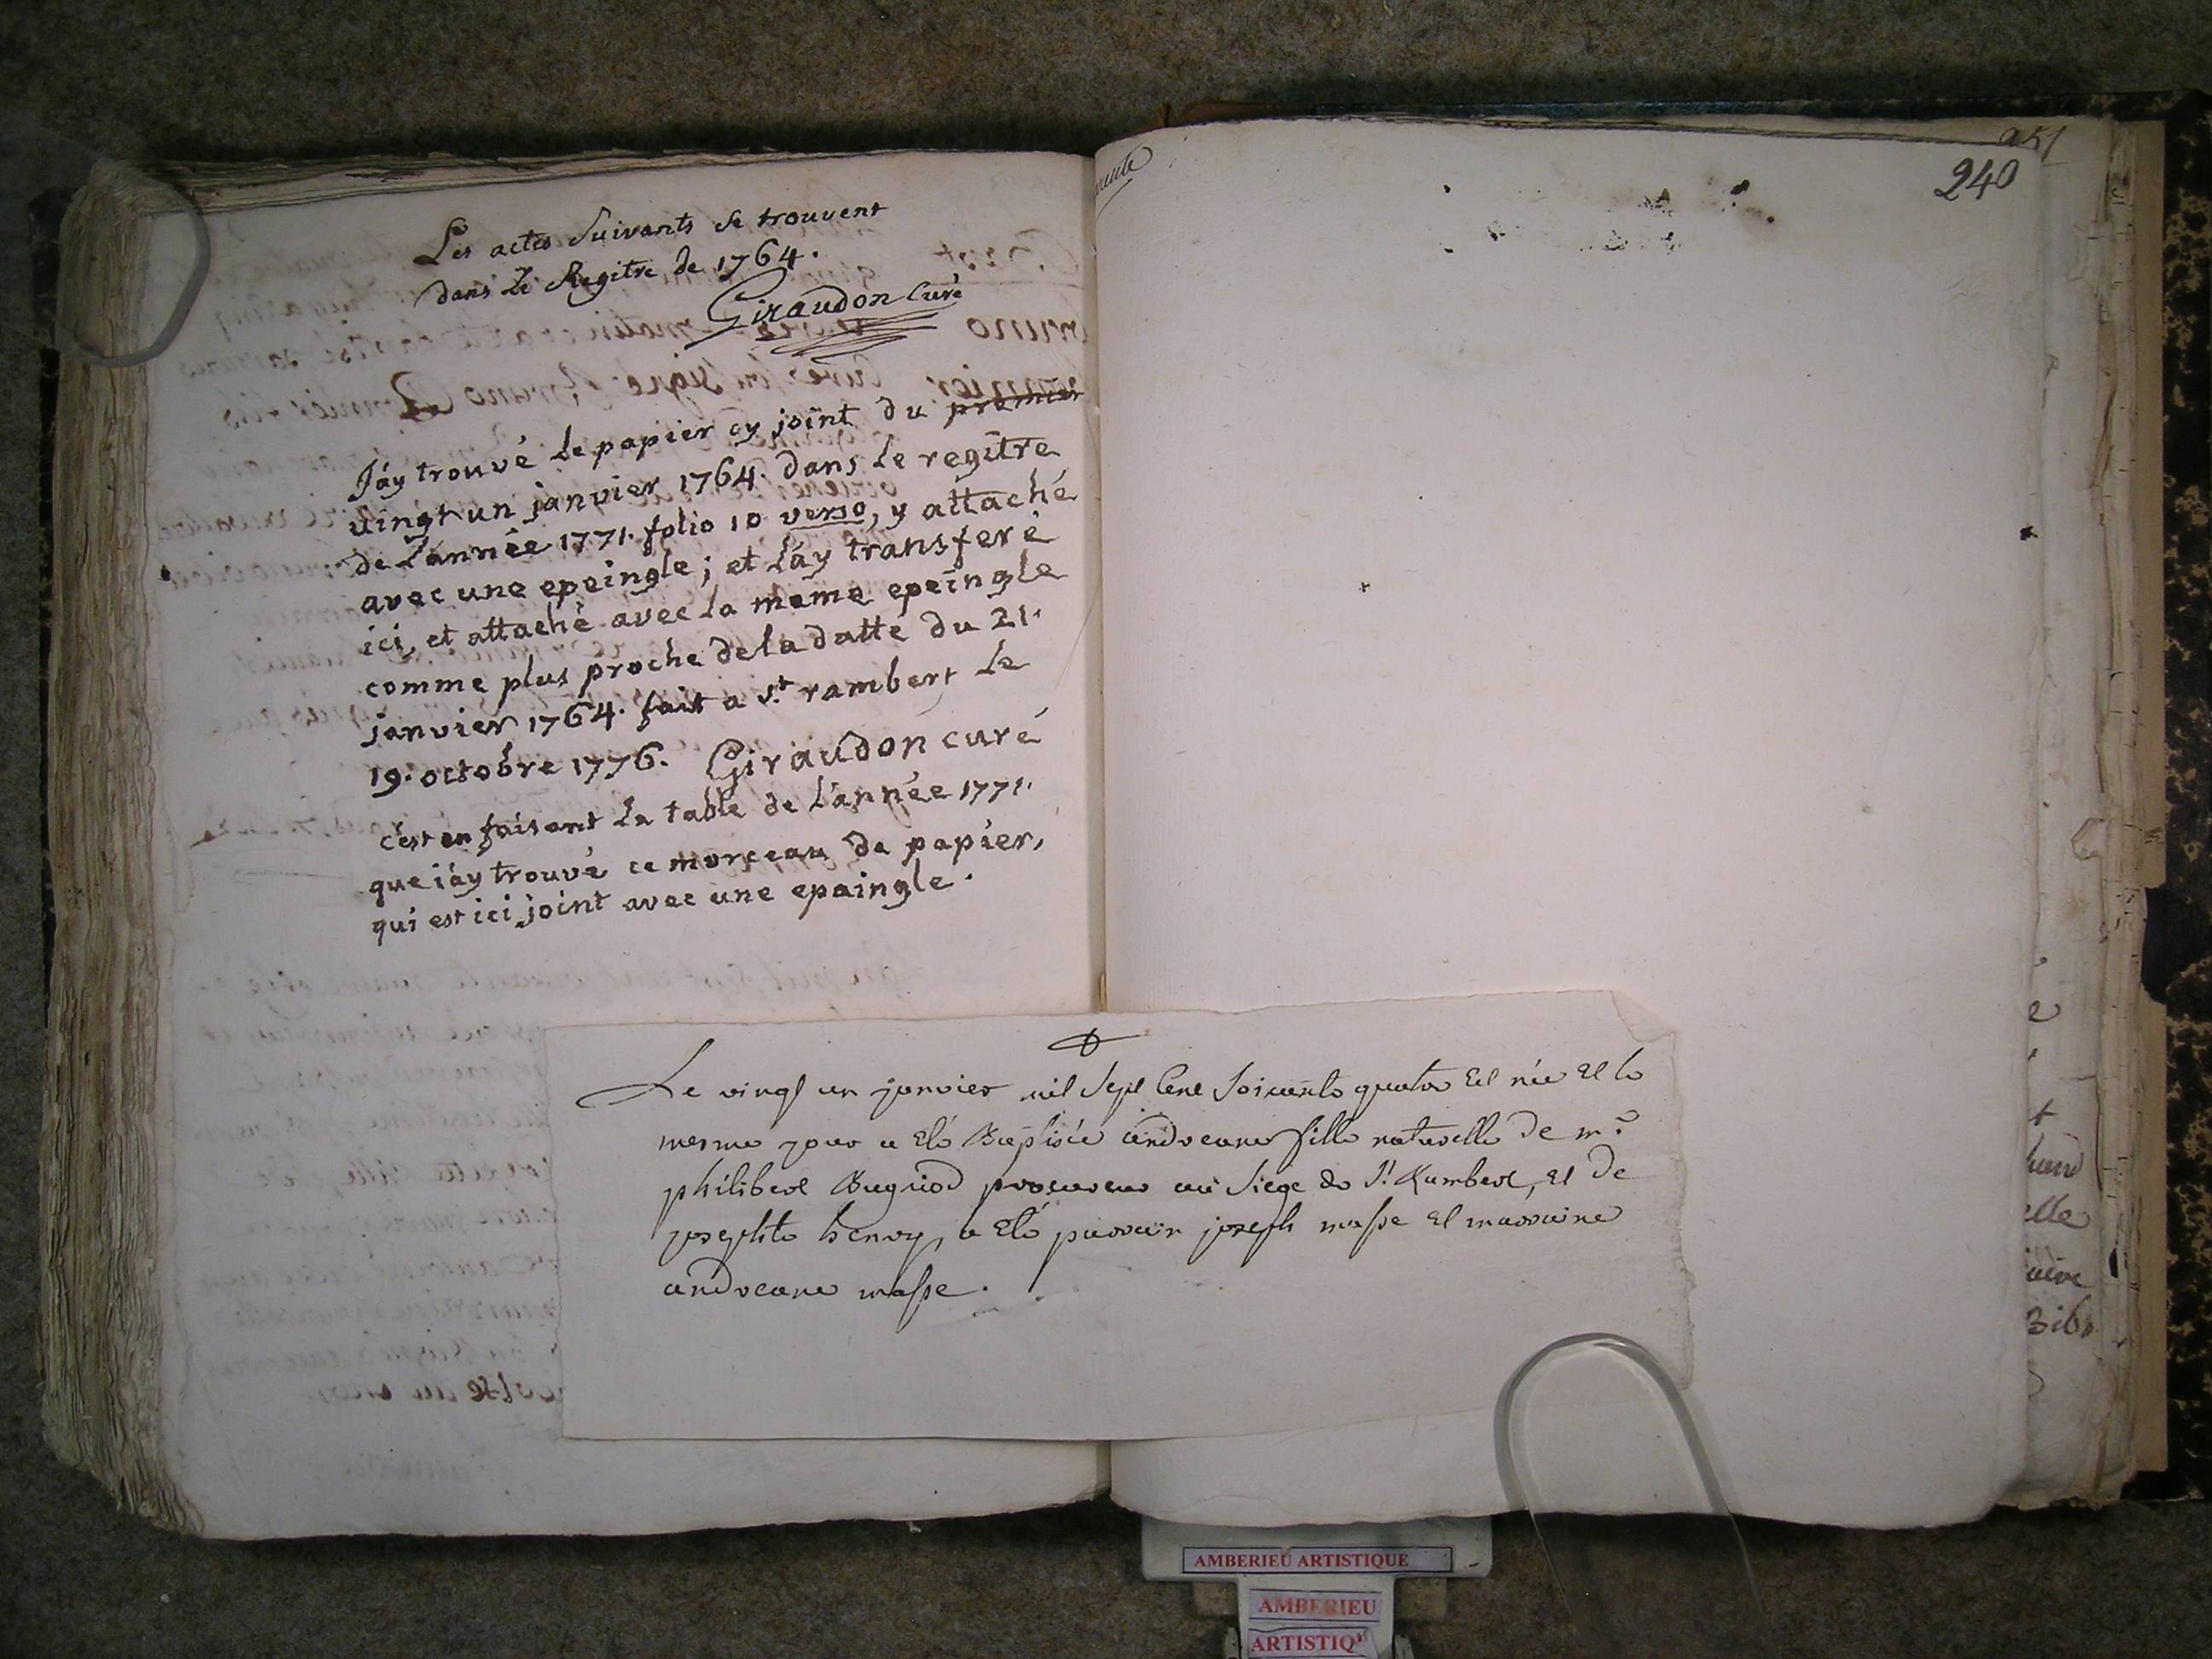 Les actes Suivants se trouvent
dans le Regitre de 1764.
Giraudon Curé
J'ay trouvé le papier cy joint du premier
vingt un janvier 1764. dans le regître
de L'année 1771. folio 10 verso, y attaché
avec une epeingle; et l'ay transferé
ici, et attaché avec la meme epeingle
comme plus proche de la datte du 21.
janvier 1764. fait a st rambert le
19. octobre 1776. Giraudon curé
c'est en faisant la table de L'année 1771.
que j'ay trouvé ce morceau de papier,
qui est ici joint avec une epaingle.
251
240
Le vingt un janvier mil sept cent soixante quatre est née et le
mesme jour a eté Baptisée andreane fille naturelle de mr
philibert Bugniod procureur au siege de St Rambert, et de
josephte henry, a eté parrain joseph masse et marraine
andreane masse.
elle
AMBERIEU ARTISTIQUE
AMBERIEU
ARTISTIQ